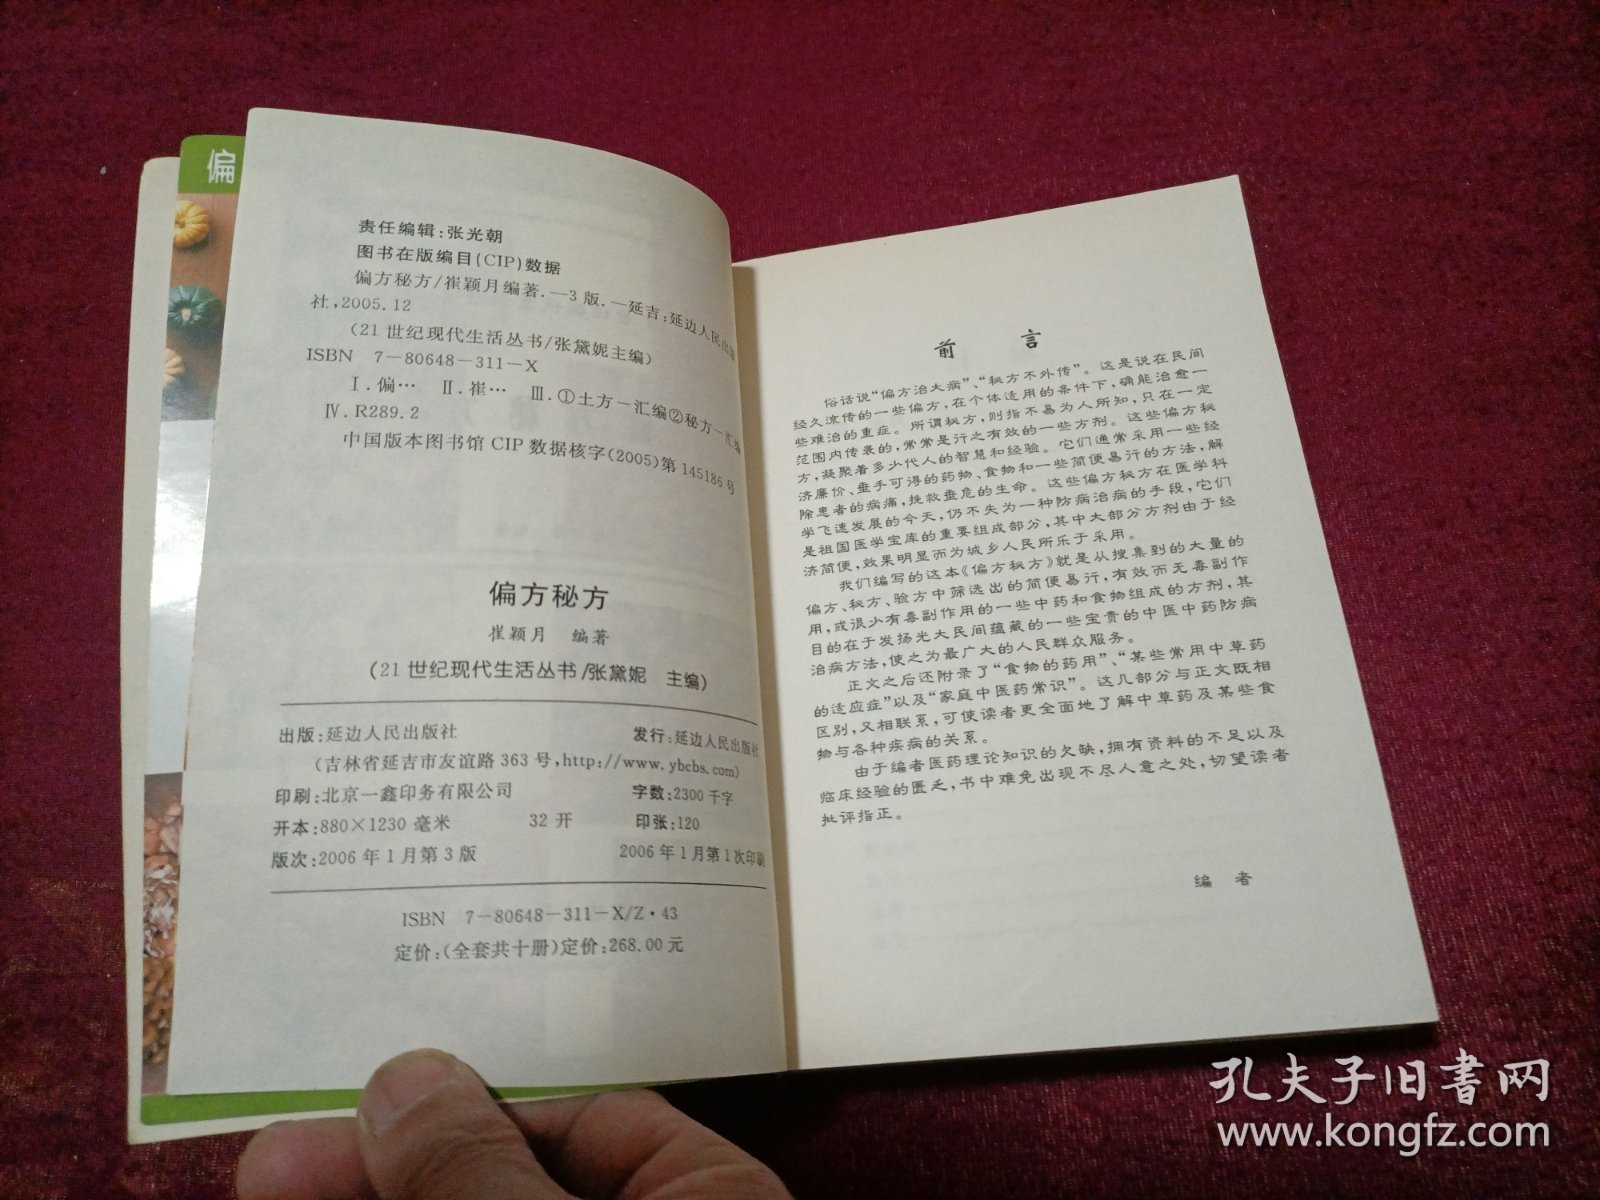 偏
责任编辑:张光朝
图书在版编目(CIP)数据
偏方秘方/崔颖月编著.—3版.—延吉:延边人民出版
社,2005.12
(21世纪现代生活丛书/张黛妮主编)
ISBN 7-80648-311-X
Ⅰ.偏… Ⅱ.崔… Ⅲ.①土方-汇编②秘方-汇编
Ⅳ.R289.2
中国版本图书馆CIP数据核字(2005)第145186号
偏方秘方
崔颖月 编著
(21世纪现代生活丛书/张黛妮 主编)
出版:延边人民出版社 发行:延边人民出版社
(吉林省延吉市友谊路363号,http://www.ybcbs.com)
印刷:北京一鑫印务有限公司 字数:2300千字
开本:880×1230毫米 32开 印张:120
版次:2006年1月第3版 2006年1月第1次印刷
ISBN 7-80648-311-X/Z·43
定价:(全套共十册)定价:268.00元
前言
俗话说“偏方治大病”、“秘方不外传”。这是说在民间
经久流传的一些偏方,在个体适用的条件下,确能治愈一
些难治的重症。所谓秘方,则指不易为人所知,只在一定
范围内传袭的,常常是行之有效的一些方剂。这些偏方秘
方,凝聚着多少代人的智慧和经验。它们通常采用一些经
济廉价、垂手可得的药物、食物和一些简便易行的方法,解
除患者的病痛,挽救垂危的生命。这些偏方秘方在医学科
学飞速发展的今天,仍不失为一种防病治病的手段,它们
是祖国医学宝库的重要组成部分,其中大部分方剂由于经
济简便,效果明显而为城乡人民所乐于采用。
我们编写的这本《偏方秘方》就是从搜集到的大量的
偏方、秘方、验方中筛选出的简便易行,有效而无毒副作
用,或很少有毒副作用的一些中药和食物组成的方剂,其
目的在于发扬光大民间蕴藏的一些宝贵的中医中药防病
治病方法,使之为最广大的人民群众服务。
正文之后还附录了“食物的药用”、“某些常用中草药
的适应症”以及“家庭中医药常识”。这几部分与正文既相
区别,又相联系,可使读者更全面地了解中草药及某些食
物与各种疾病的关系。
由于编者医药理论知识的欠缺,拥有资料的不足以及
临床经验的匮乏,书中难免出现不尽人意之处,切望读者
批评指正。
编者
孔夫子旧书网
www.kongfz.com